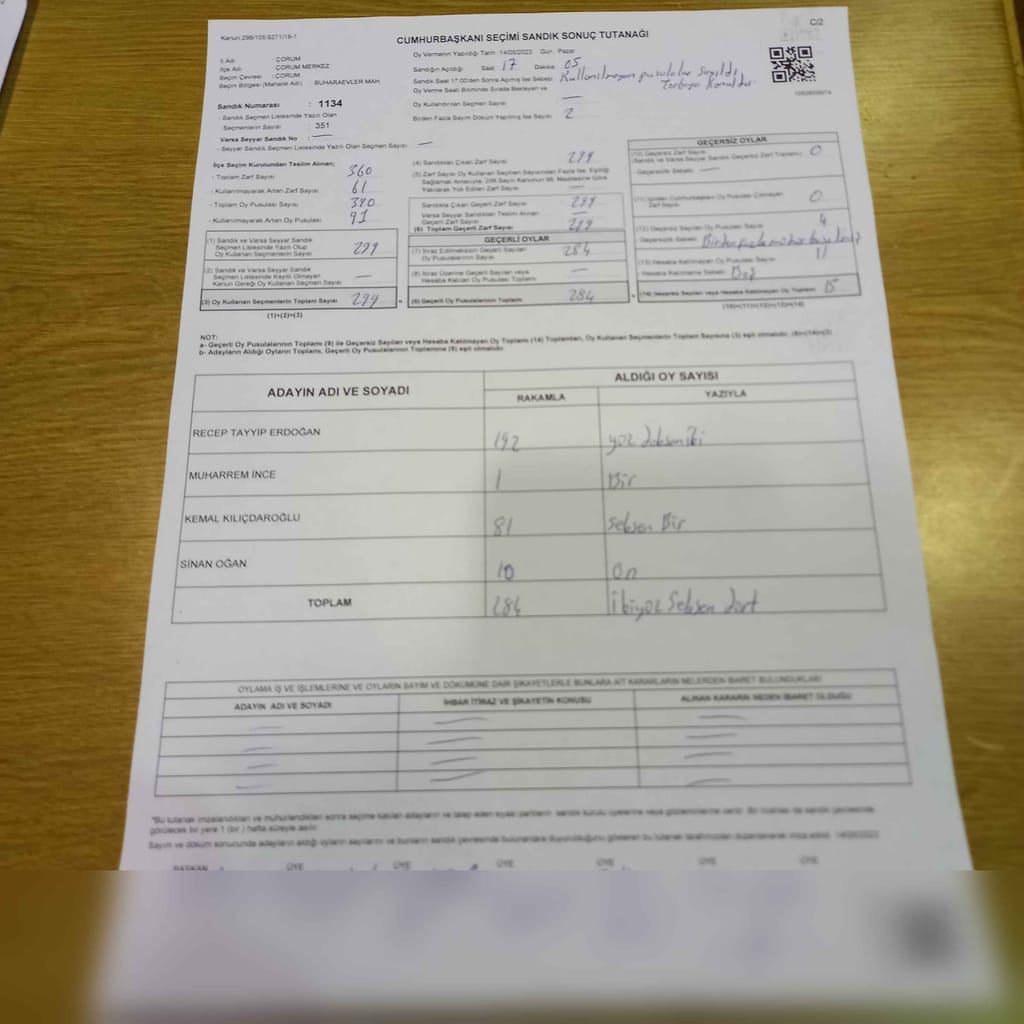 Kanun:298/105,6271/18-1
C/2
CUMHURBAŞKANI SEÇİMİ SANDIK SONUÇ TUTANAĞI
İl Adı : ÇORUM
İlçe Adı : ÇORUM MERKEZ
Seçim Çevresi : ÇORUM
Seçim Bölgesi (Mahalle Adı) : BUHARAEVLER MAH.
Oy Vermenin Yapıldığı Tarih 14/05/2023 Gün Pazar
Sandığın Açıldığı Saat 17 Dakika 05
Sandık Saat 17:00'den Sonra Açılmış İse Sebebi Kullanılmayan pusulalar sayıldı
Torbaya Konuldu
Oy Verme Saati Bitiminde Sırada Bekleyen ve
Oy Kullandırılan Seçmen Sayısı —
Birden Fazla Sayım Döküm Yapılmış İse Sayısı 2
Sandık Numarası : 1134
- Sandık Seçmen Listesinde Yazılı Olan
Seçmenlerin Sayısı : 351
Varsa Seyyar Sandık No : —
- Seyyar Sandık Seçmen Listesinde Yazılı Olan Seçmen Sayısı : —
İlçe Seçim Kurulundan Teslim Alınan;
- Toplam Zarf Sayısı 360
- Kullanılmayarak Artan Zarf Sayısı 61
- Toplam Oy Pusulası Sayısı
- Kullanılmayarak Artan Oy Pusulası 91
(1) Sandık ve Varsa Seyyar Sandık
Seçmen Listesinde Yazılı Olup
Oy Kullanan Seçmenlerin Sayısı 299
(2) Sandık ve Varsa Seyyar Sandık
Seçmen Listesinde Kayıtlı Olmayan
Kanun Gereği Oy Kullanan Seçmen Sayısı —
(3) Oy Kullanan Seçmenlerin Toplam Sayısı 299
(1)+(2)=(3)
(4) Sandıktan Çıkan Zarf Sayısı 299
(5) Zarf Sayısı Oy Kullanan Seçmen Sayısından Fazla İse, Eşitliği
Sağlamak Amacıyla, 298 Sayılı Kanunun 98. Maddesine Göre
Yakılarak Yok Edilen Zarf Sayısı —
Sandıkta Çıkan Geçerli Zarf Sayısı 299
Varsa Seyyar Sandıktan Teslim Alınan
Geçerli Zarf Sayısı —
(6) Toplam Geçerli Zarf Sayısı 299
GEÇERLİ OYLAR
(7) İtiraz Edilmeksizin Geçerli Sayılan
Oy Pusulalarının Toplamı 284
(8) İtiraz Üzerine Geçerli Sayılan veya
Hesaba Katılan Oy Pusulası Toplamı —
(9) Geçerli Oy Pusulalarının Toplamı 284
GEÇERSİZ OYLAR
(10) Geçersiz Zarf Sayısı
(Sandık ve Varsa Seyyar Sandık Geçersiz Zarf Toplamı) 0
- Geçersizlik Sebebi —
(11) İçinden Cumhurbaşkanı Oy Pusulası Çıkmayan
Zarf Sayısı 0
(12) Geçersiz Sayılan Oy Pusulası Sayısı 4
Geçersizlik Sebebi
(13) Hesaba Katılmayan Oy Pusulası Sayısı 11
Hesaba Katılmama Sebebi Boş
(14) Geçersiz Sayılan veya Hesaba Katılmayan Oy Toplamı 15
(10)+(11)+(12)+(13)=(14)
NOT:
a- Geçerli Oy Pusulalarının Toplamı (9) ile Geçersiz Sayılan veya Hesaba Katılmayan Oy Toplamı (14) Toplamları, Oy Kullanan Seçmenlerin Toplam Sayısına (3) eşit olmalıdır. (9)+(14)=(3)
b- Adayların Aldığı Oyların Toplamı, Geçerli Oy Pusulalarının Toplamına (9) eşit olmalıdır.
ADAYIN ADI VE SOYADI
ALDIĞI OY SAYISI
RAKAMLA YAZIYLA
RECEP TAYYİP ERDOĞAN 192 yüz doksan iki
MUHARREM İNCE 1 Bir
KEMAL KILIÇDAROĞLU 81 Seksen Bir
SİNAN OĞAN 10 On
TOPLAM 284 İkiyüz Seksen dört
OYLAMA İŞ VE İŞLEMLERİNE VE OYLARIN SAYIM VE DÖKÜMÜNE DAİR ŞİKAYETLERLE BUNLARA AİT KARARLARIN NELERDEN İBARET BULUNDUKLARI
ADAYIN ADI VE SOYADI İHBAR İTİRAZ VE ŞİKAYETİN KONUSU ALINAN KARARIN NEDEN İBARET OLDUĞU
"Bu tutanak imzalandıktan ve mühürlendikten sonra seçime katılan adayların ve talep eden siyasi partilerin sandık kurulu üyelerine veya gözlemcilerine verilir. Bir nüshası da sandık çevresinde
görülecek bir yere 1 (bir) hafta süreyle asılır.
Sayım ve döküm sonucunda adayların aldığı oyların sayılarını ve bunların sandık çevresinde bulunanlara duyurulduğunu gösteren bu tutanak tarafımızdan düzenlenerek imza edildi. 14/05/2023
BAŞKAN ÜYE ÜYE ÜYE ÜYE ÜYE ÜYE